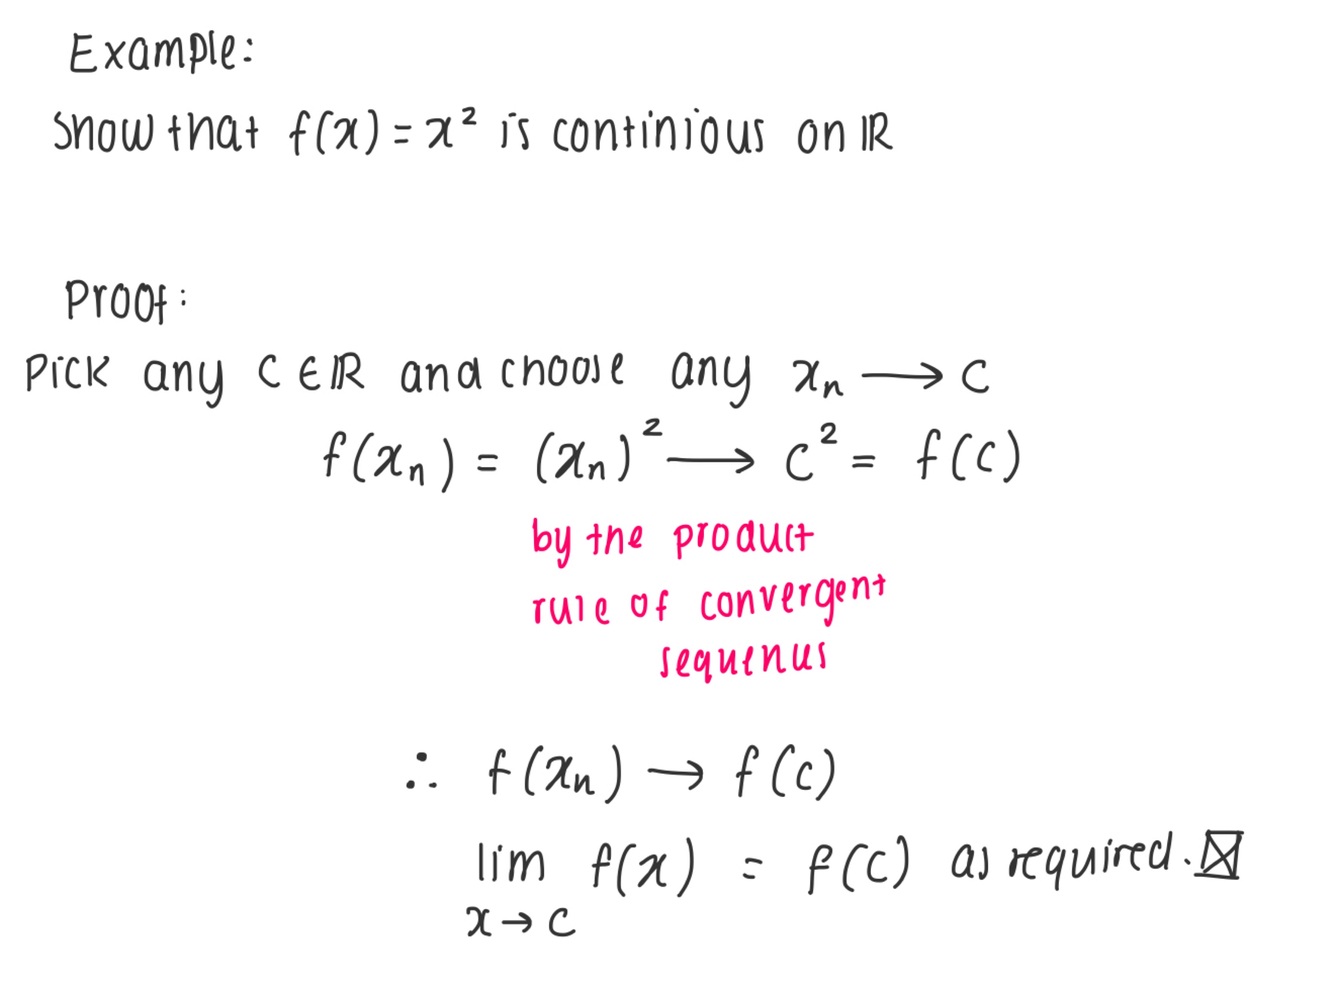 Example:
Show that f(x) = x² is continious on ℝ
Proof:
Pick any c ∈ ℝ and choose any xₙ ⟶ c
f(xₙ) = (xₙ)² ⟶ c² = f(c)
by the product
rule of convergent
sequences
∴ f(xₙ) → f(c)
lim f(x) = f(c) as required. ⊠
x → c